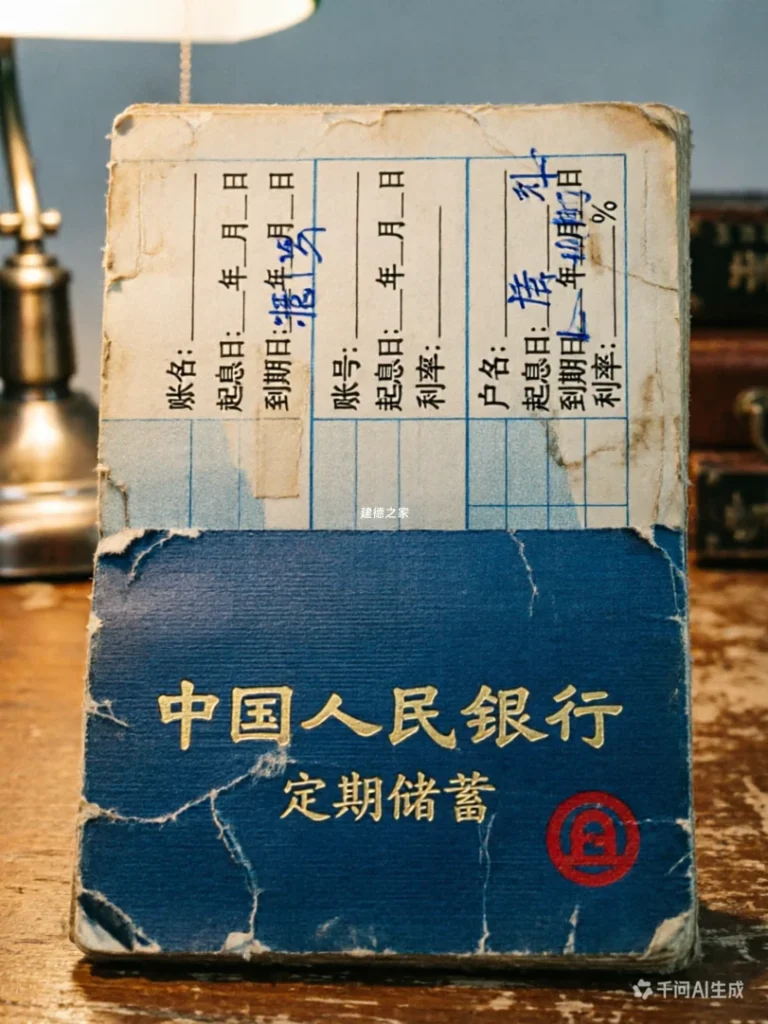 账名:
起息日: 年 月 日
到期日: 年 月 日
账号:
起息日: 年 月 日
利率:
户名:
起息日: 日
到期日 年 月
利率: %
建德之家
中国人民银行
定期储蓄
千问AI生成